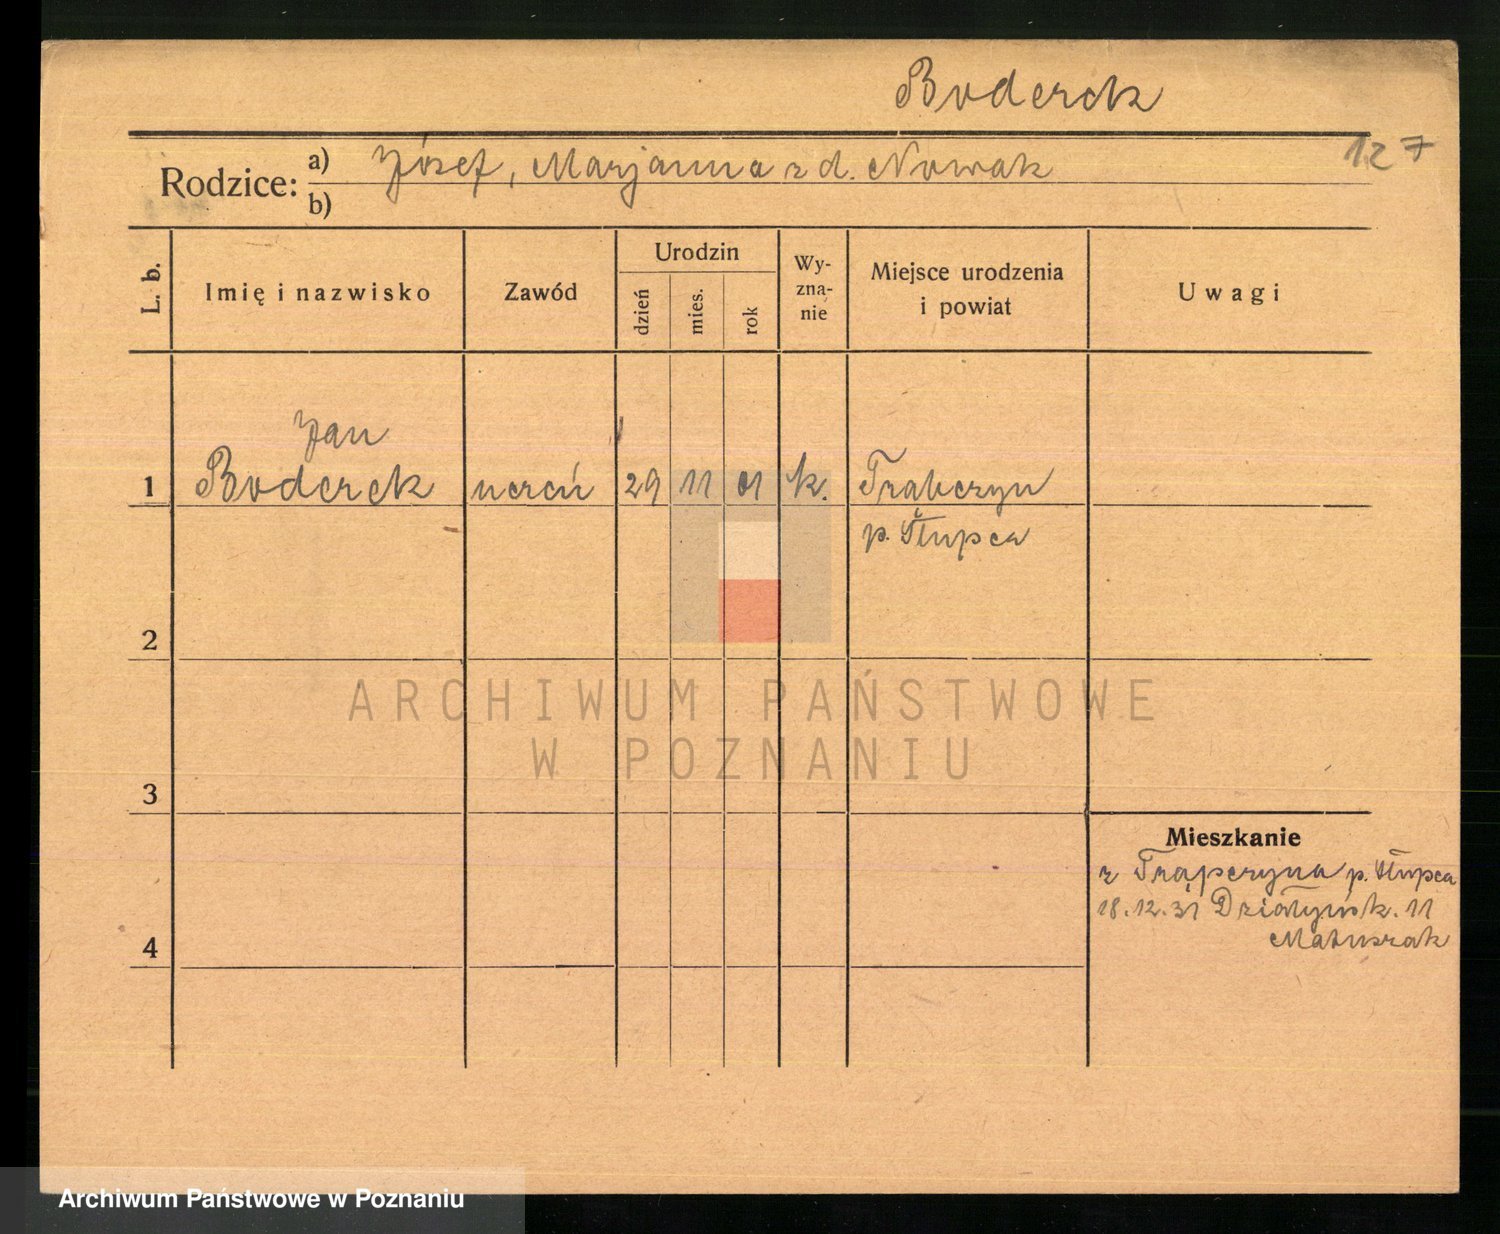 Boderek
127
Rodzice: a) Józef, Marjanna z d. Nowak
b)
L. b.
Imię i nazwisko
Zawód
Urodzin
dzień
mies.
rok
Wy-
zna-
nie
Miejsce urodzenia
i powiat
Uwagi
Jan
1 Boderek uczeń 29 11 01 k. Trabczyn
p. Słupca
2
3
4
Mieszkanie
z Trąpczyna p. Słupca
18.12.31 Działyńsk. 11
Matuszak
ARCHIWUM PAŃSTWOWE
W POZNANIU
Archiwum Państwowe w Poznaniu